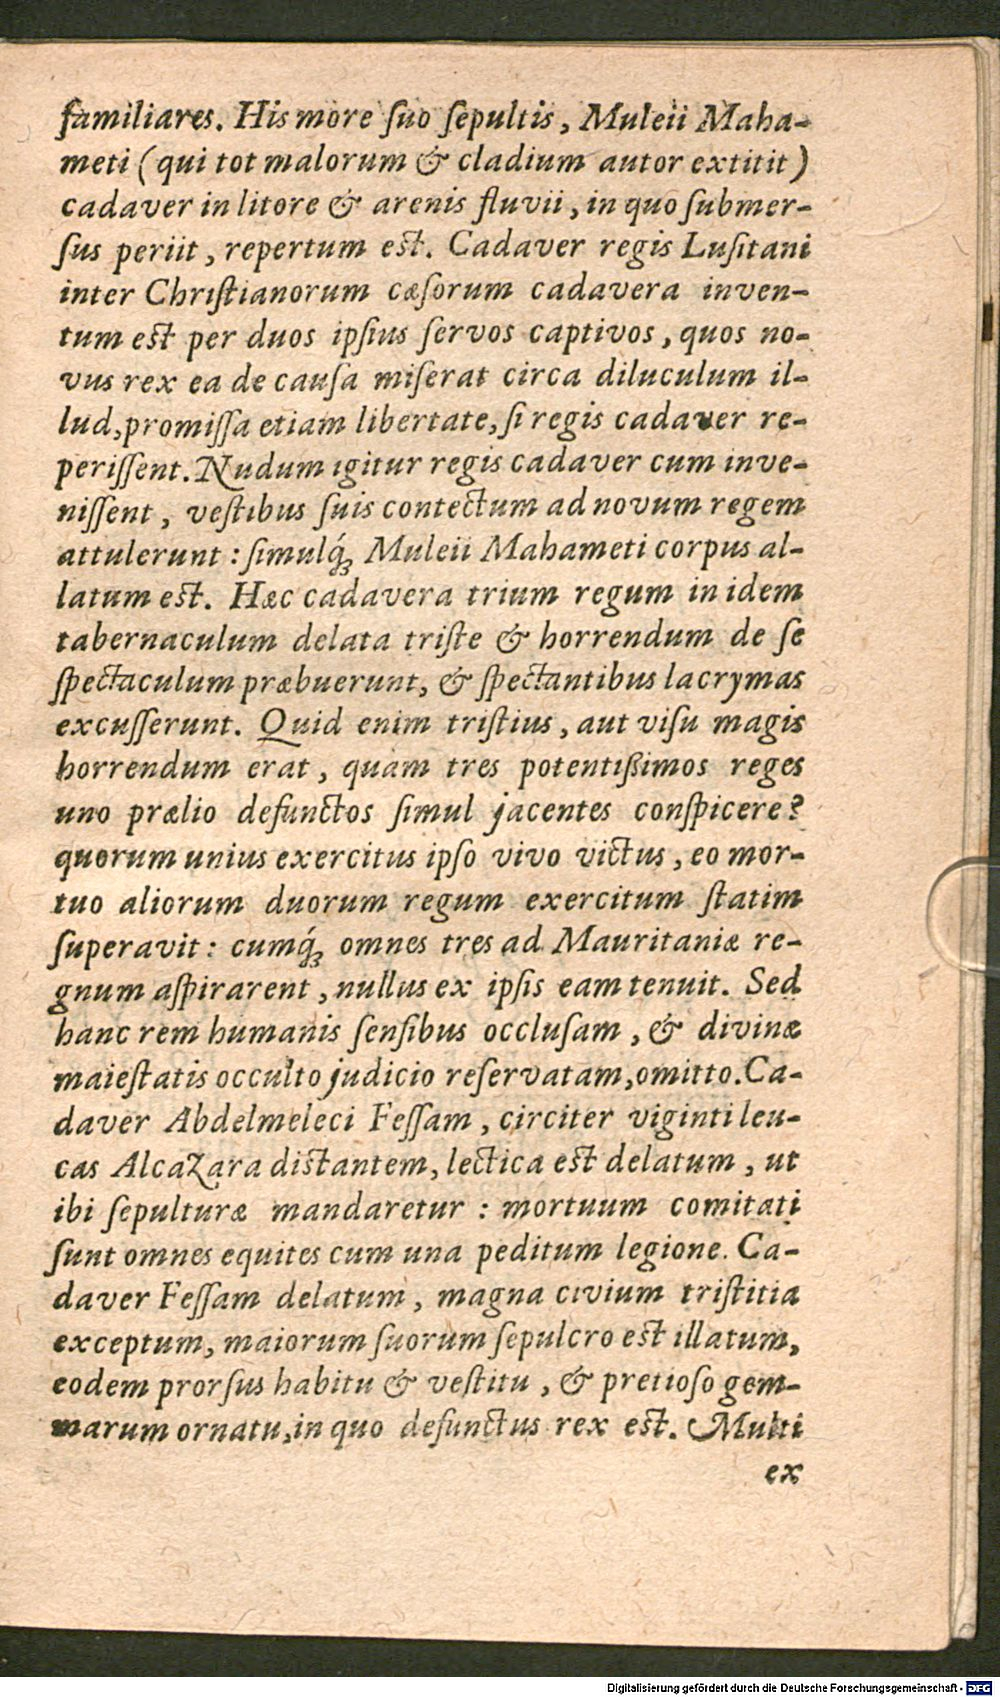 familiares. His more ſuo ſepultis, Muleii Maha-
meti (qui tot malorum & cladium autor extitit)
cadaver in litore & arenis fluvii, in quo ſubmer-
ſus periit, repertum est. Cadaver regis Luſitani
inter Chriſtianorum cæſorum cadavera inven-
tum est per duos ipſius ſervos captivos, quos no-
vus rex ea de cauſa miſerat circa diluculum il-
lud, promiſſa etiam libertate, ſi regis cadaver re-
periſſent. Nudum igitur regis cadaver cum inve-
niſſent, veſtibus ſuis contectum ad novum regem
attulerunt: ſimulq́; Muleii Mahameti corpus al-
latum est. Hæc cadavera trium regum in idem
tabernaculum delata triſte & horrendum de ſe
ſpectaculum præbuerunt, & ſpectantibus lacrymas
excuſſerunt. Quid enim triſtius, aut viſu magis
horrendum erat, quàm tres potentißimos reges
uno prælio defunctos ſimul jacentes conſpicere?
quorum unius exercitus ipſo vivo victus, eo mor-
tuo aliorum duorum regum exercitum ſtatim
ſuperavit: cumq́; omnes tres ad Mauritaniæ re-
gnum aſpirarent, nullus ex ipſis eam tenuit. Sed
hanc rem humanis ſenſibus occluſam, & divinæ
maieſtatis occulto judicio reſervatam, omitto. Ca-
daver Abdelmeleci Feſſam, circiter viginti leu-
cas Alcazara distantem, lectica est delatum, ut
ibi ſepulturæ mandaretur: mortuum comitati
ſunt omnes equites cum una peditum legione. Ca-
daver Feſſam delatum, magna civium triſtitia
exceptum, maiorum ſuorum ſepulcro est illatum,
eodem prorſus habitu & veſtitu, & pretioſo gem-
marum ornatu, in quo defunctus rex est. Multi
ex
Digitalisierung gefördert durch die Deutsche Forschungsgemeinschaft - DFG